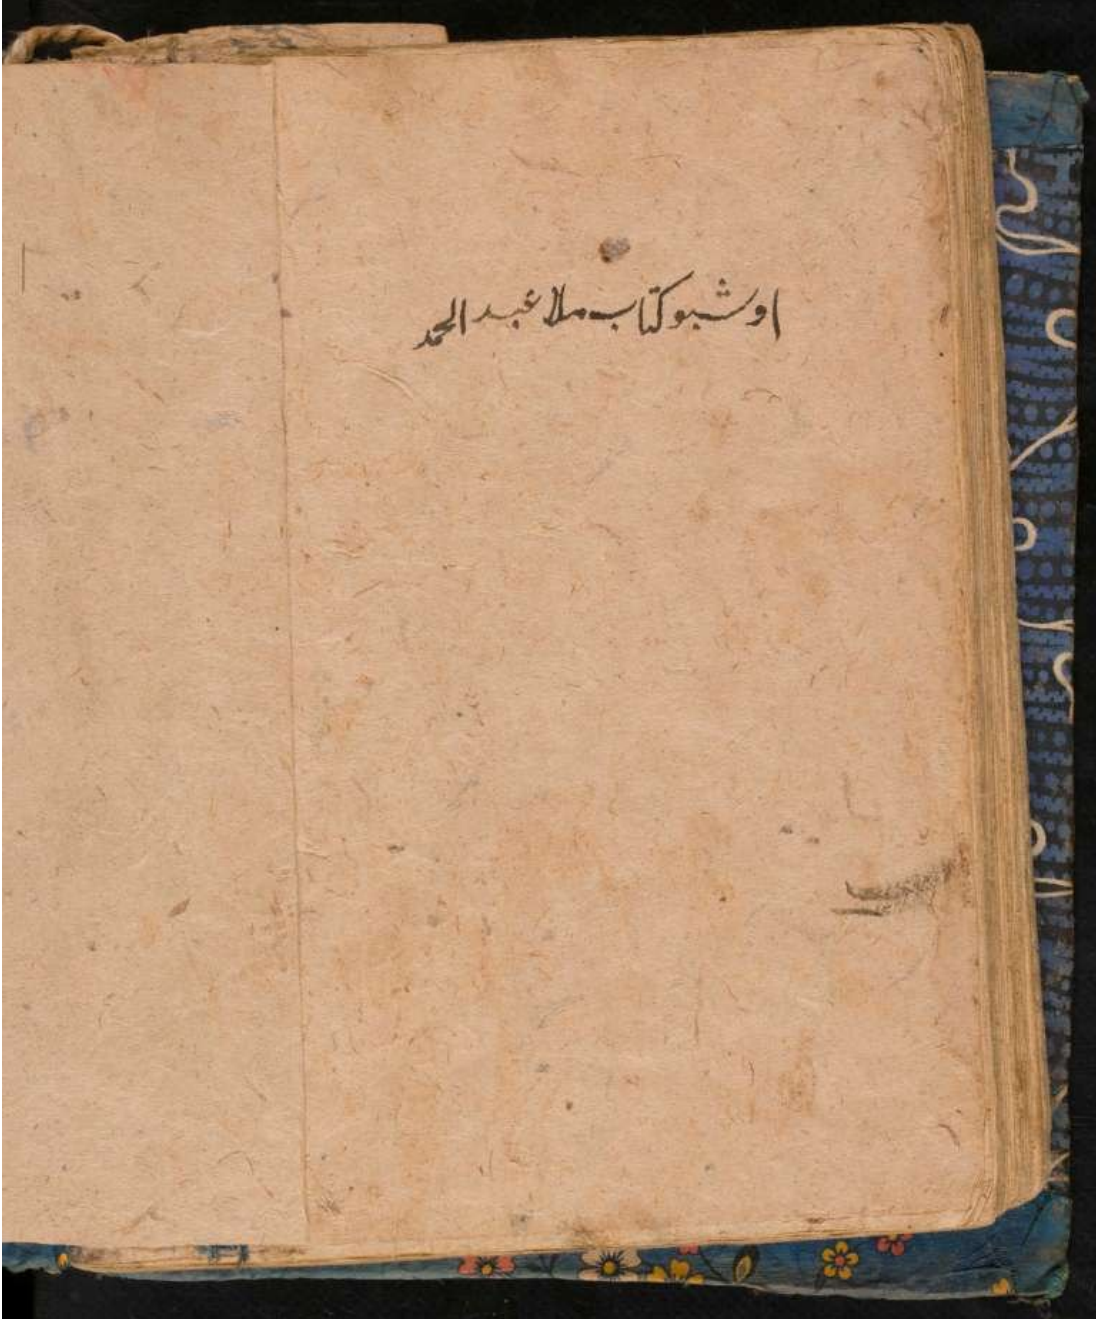 اوشبو كتاب ملا عبد الحمد